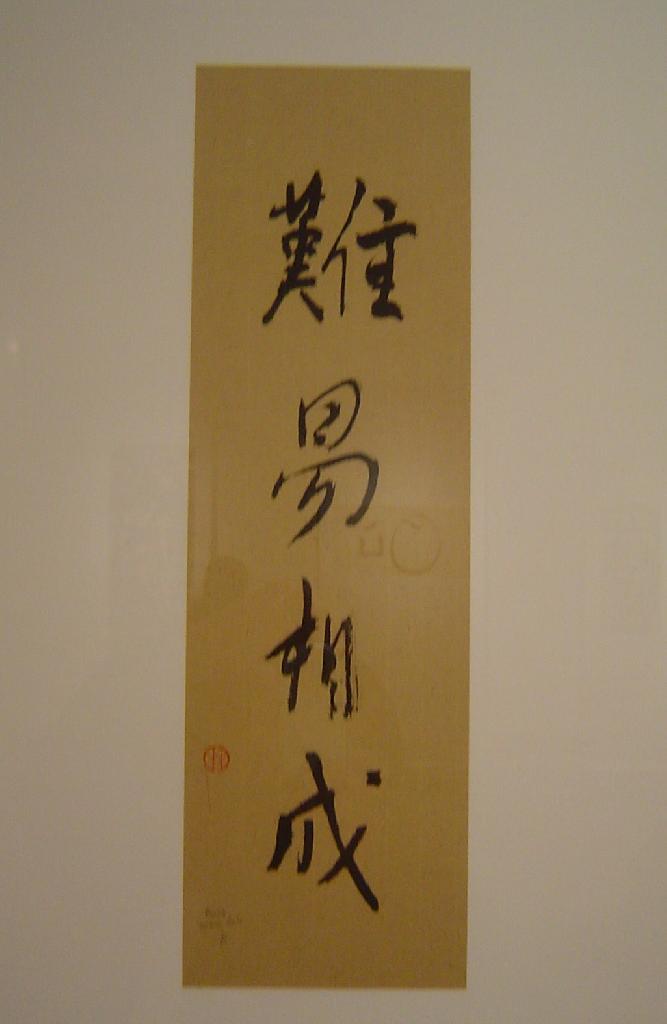 難易相成